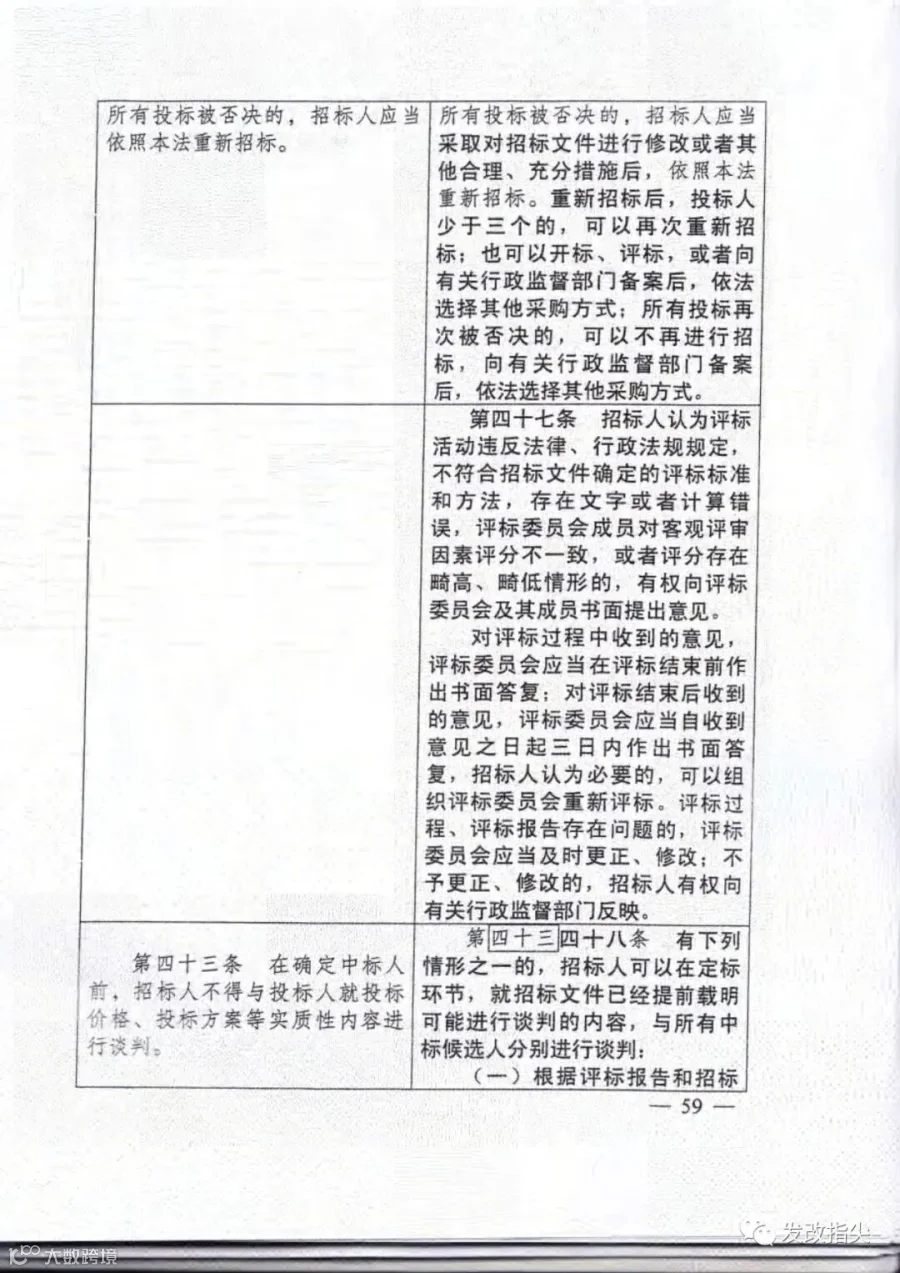 所有投标被否决的，招标人应当
依照本法重新招标。
所有投标被否决的，招标人应当
采取对招标文件进行修改或者其
他合理、充分措施后，依照本法
重新招标。重新招标后，投标人
少于三个的，可以再次重新招
标；也可以开标、评标，或者向
有关行政监督部门备案后，依法
选择其他采购方式；所有投标再
次被否决的，可以不再进行招
标，向有关行政监督部门备案
后，依法选择其他采购方式。
第四十七条　招标人认为评标
活动违反法律、行政法规规定，
不符合招标文件确定的评标标准
和方法，存在文字或者计算错
误，评标委员会成员对客观评审
因素评分不一致，或者评分存在
畸高、畸低情形的，有权向评标
委员会及其成员书面提出意见。
对评标过程中收到的意见，
评标委员会应当在评标结束前作
出书面答复；对评标结束后收到
的意见，评标委员会应当自收到
意见之日起三日内作出书面答
复，招标人认为必要的，可以组
织评标委员会重新评标。评标过
程、评标报告存在问题的，评标
委员会应当及时更正、修改；不
予更正、修改的，招标人有权向
有关行政监督部门反映。
第四十三条　在确定中标人
前，招标人不得与投标人就投标
价格、投标方案等实质性内容进
行谈判。
第四十三四十八条　有下列
情形之一的，招标人可以在定标
环节，就招标文件已经提前载明
可能进行谈判的内容，与所有中
标候选人分别进行谈判：
（一）根据评标报告和招标
— 59 —
发改指尖
大数跨境